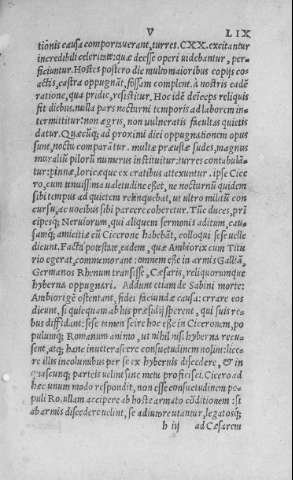 V LIX
tionis causa comportauerant, turres. CXX. excitantur
incredibili celeritate: quæ deesse operi uidebantur, per-
ficiuntur. Hostes postero die multo maioribus copijs co
actis, castra oppugnāt, fossam complent. à nostris eadē
ratione, qua pridie, resistitur. Hoc idē deīceps reliquis
fit diebus. nulla pars nocturni temporis ad laborem in-
termittitur: non ægris, non uulneratis facultas quietis
datur. Quæcūq; ad proximi diei oppugnationem opus
sunt, noctu comparātur. multæ præustæ sudes, magnus
muraliū pilorū numerus instituitur: turres contabulā-
tur: pinnæ, loricæque ex cratibus attexuntur. ipse Cice
ro, cum tenuissima ualetudine esset, ne nocturnū quidem
sibi tempus ad quietem relinquebat, ut ultro militū con
cursu, ac uocibus sibi parcere cogeretur. Tūc duces, prī
cipesq; Neruiorum, qui aliquem sermonis aditum, cau-
samq; amicitiæ cū Cicerone habebāt, colloqui sese uelle
dicunt. Facta potestate, eadem, quæ Ambiorix cum Titu
rio egerat, commemorant: omnem esse in armis Galliā,
Germanos Rhenum transisse, Cæsaris, reliquorumque
hyberna oppugnari. Addunt etiam de Sabini morte:
Ambiorigē ostentant, fidei faciundæ causa: errare eos
dicunt, si quicquam ab his præsidij sperent, qui suis re-
bus diffidant: sese tamen hoc esse in Ciceronem, po
pulumq; Romanum animo, ut nihil nisi hyberna recu-
sent, atq; hanc inueterascere consuetudinem nolint: lice-
re illis incolumibus per se ex hybernis discedere, & in
quascunq; parteis uelint sine metu proficisci. Cicero ad
hæc unum modo respondit, non esse consuetudinem po
puli Ro. ullam accipere ab hoste armato cōditionem: si
ab armis discedere uelint, se adiutore utantur, legatosq;
h iij ad Cæsarem